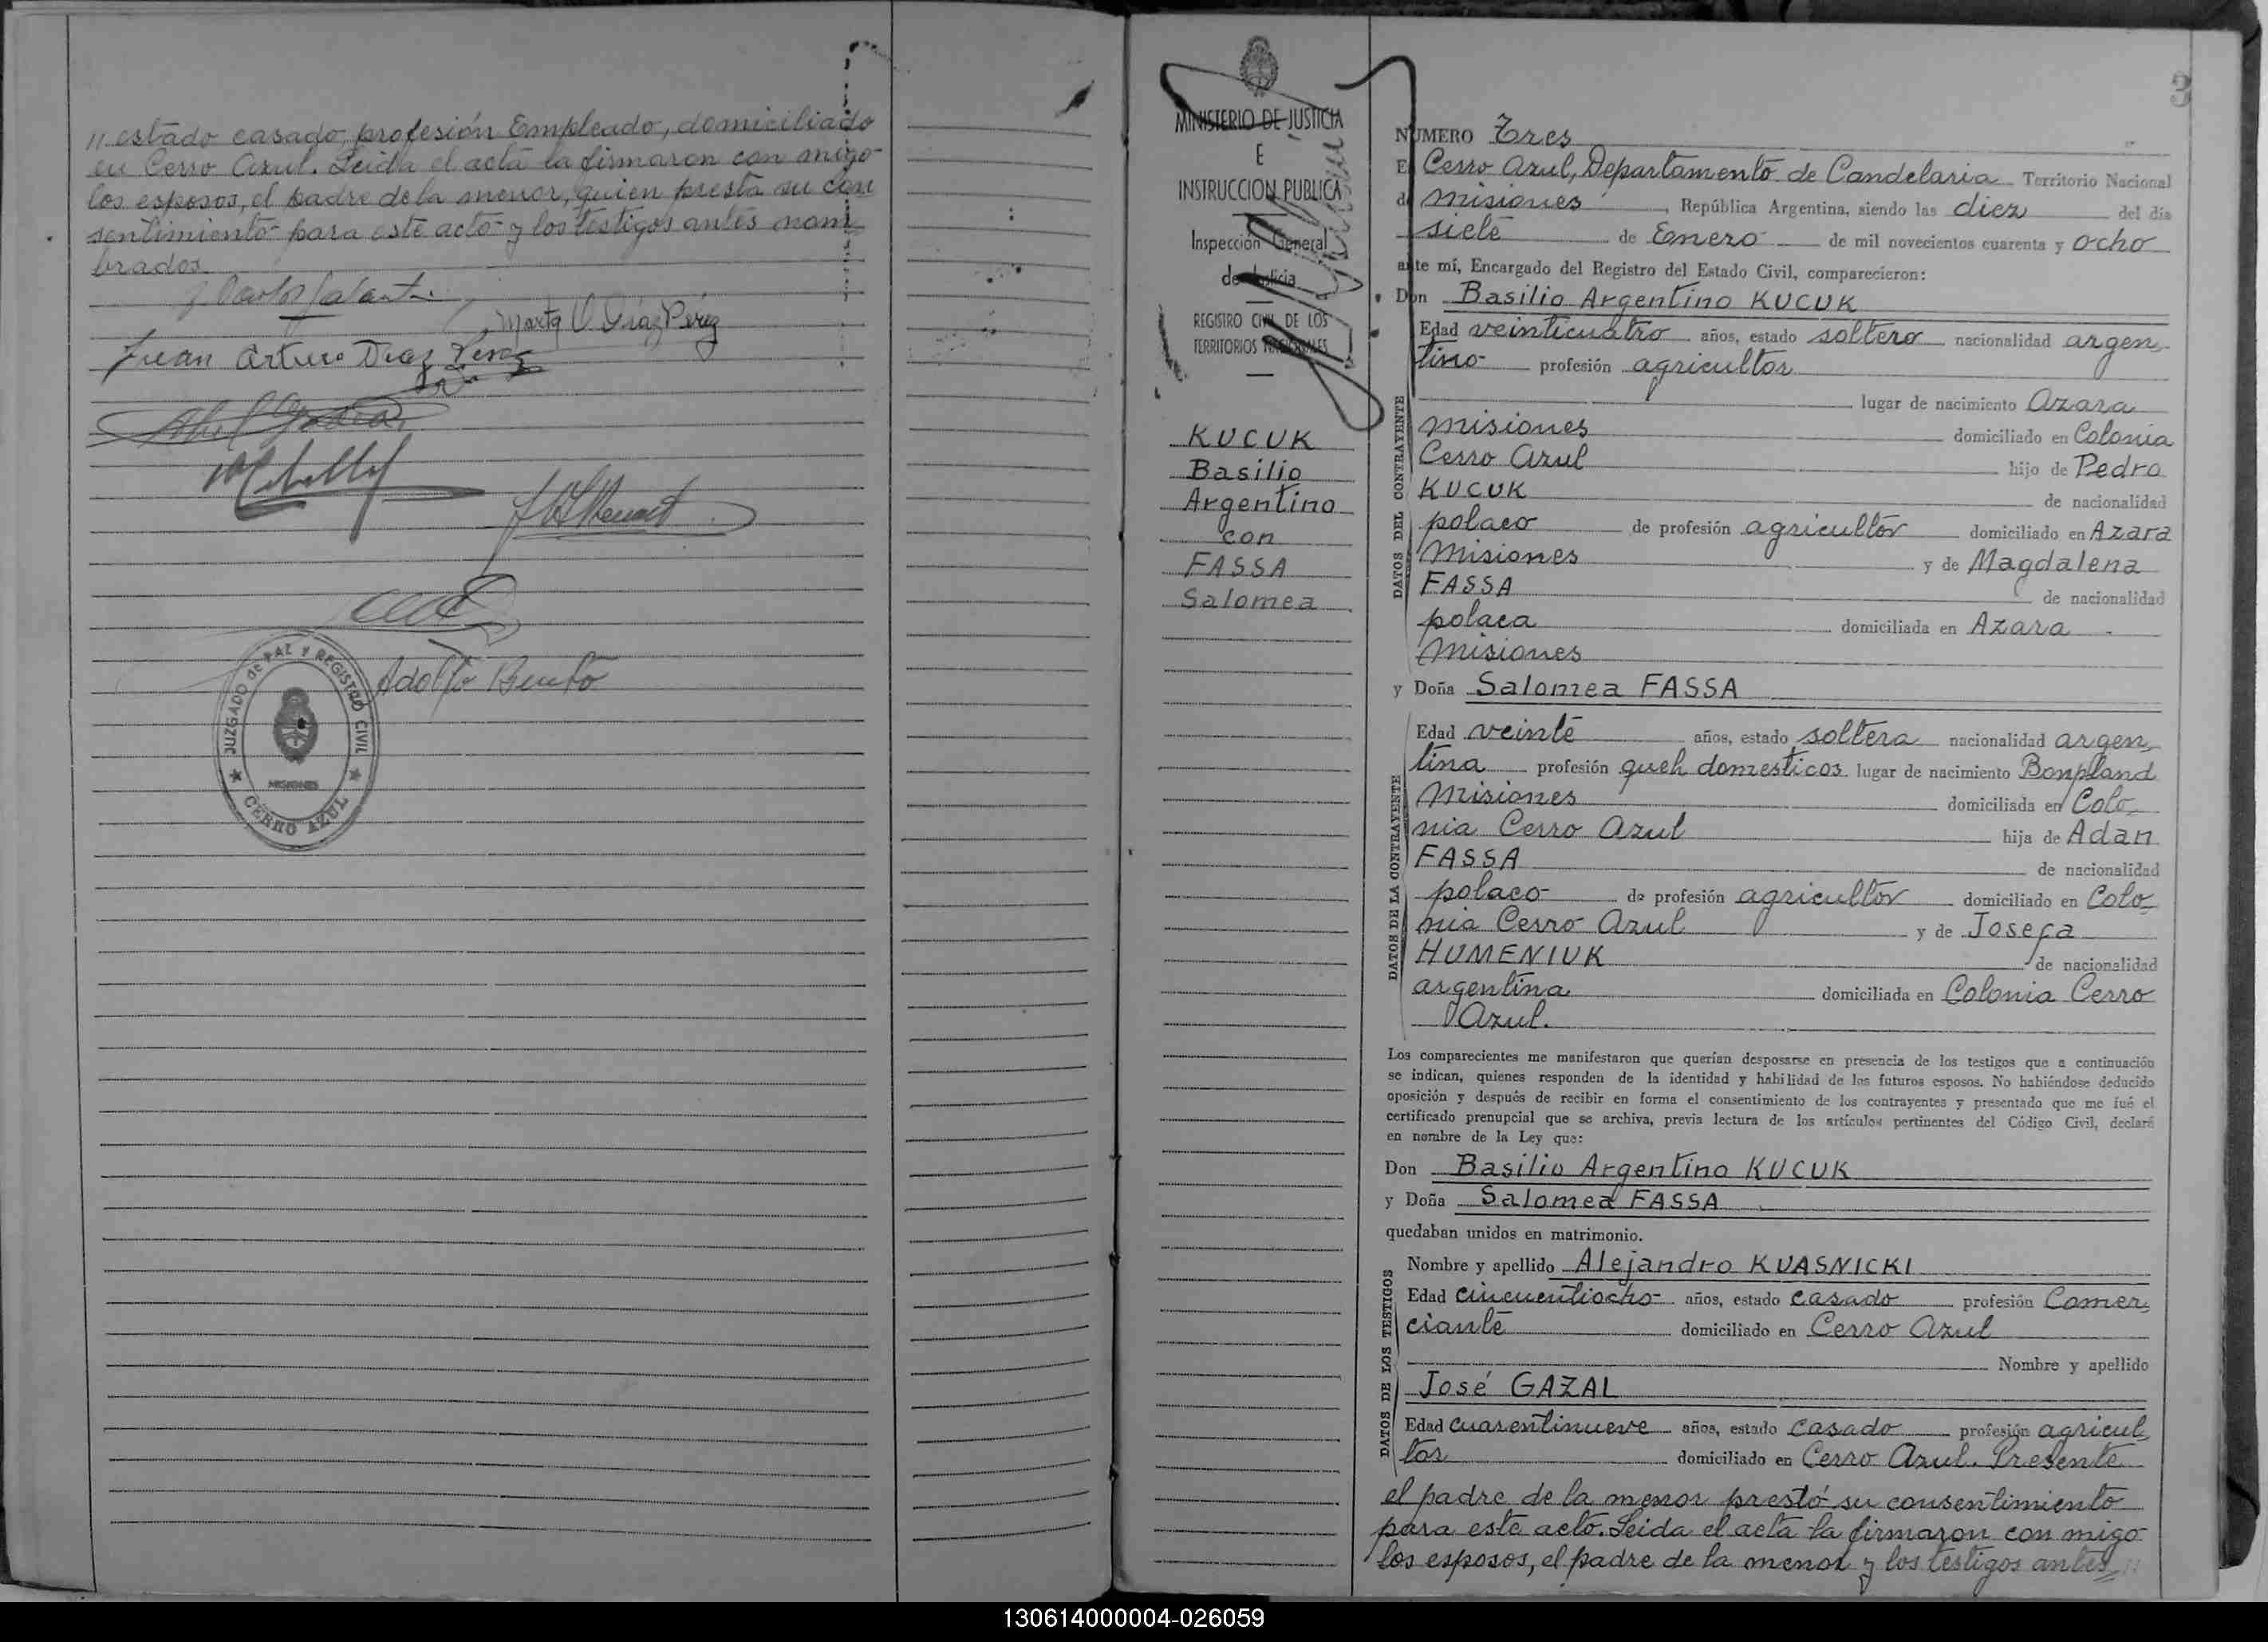 // estado casado, profesión Empleado, domiciliado
en Cerro Azul. Leida el acta la firmaron con migo
los esposos, el padre de la menor, quien presta su con
sentimiento para este acto y los testigos antes nom
brados.
Marta O Díaz Pérez
Juan Arturo Diaz Perez
Adolfo
JUZGADO de PAZ Y REGISTRO CIVIL
MISIONES
CERRO AZUL
MINISTERIO DE JUSTICIA
E
INSTRUCCION PUBLICA
Inspección General
de Justicia
REGISTRO CIVIL DE LOS
TERRITORIOS NACIONALES
KUCUK
Basilio
Argentino
con
FASSA
Salomea
3
NUMERO Tres
En Cerro Azul, Departamento de Candelaria Territorio Nacional
de Misiones, República Argentina, siendo las diez del día
siete de Enero de mil novecientos cuarenta y ocho
ante mí, Encargado del Registro del Estado Civil, comparecieron:
Don Basilio Argentino KUCUK
DATOS DEL CONTRAYENTE
Edad veinticuatro años, estado soltero nacionalidad argen
tino profesión agricultor
lugar de nacimiento Azara
Misiones domiciliado en Colonia
Cerro Azul hijo de Pedro
KUCUK de nacionalidad
polaco de profesión agricultor domiciliado en Azara
Misiones y de Magdalena
FASSA de nacionalidad
polaca domiciliada en Azara
Misiones
y Doña Salomea FASSA
DATOS DE LA CONTRAYENTE
Edad veinte años, estado soltera nacionalidad argen
tina profesión queh domesticos lugar de nacimiento Bonpland
Misiones domiciliada en Colo
nia Cerro Azul hija de Adan
FASSA de nacionalidad
polaco de profesión agricultor domiciliado en Colo
nia Cerro Azul y de Josefa
HUMENIUK de nacionalidad
argentina domiciliada en Colonia Cerro
Azul.
Los comparecientes me manifestaron que querían desposarse en presencia de los testigos que a continuación
se indican, quienes responden de la identidad y habilidad de los futuros esposos. No habiéndose deducido
oposición y después de recibir en forma el consentimiento de los contrayentes y presentado que me fué el
certificado prenupcial que se archiva, previa lectura de los artículos pertinentes del Código Civil, declaré
en nombre de la Ley que:
Don Basilio Argentino KUCUK
y Doña Salomea FASSA
quedaban unidos en matrimonio.
DATOS DE LOS TESTIGOS
Nombre y apellido Alejandro KUASNICKI
Edad cincuentiocho años, estado casado profesión Comer
ciante domiciliado en Cerro Azul
Nombre y apellido
José GAZAL
Edad cuarentinueve años, estado casado profesión agricul
tor domiciliado en Cerro Azul. Presente
el padre de la menor prestó su consentimiento
para este acto. Leida el acta la firmaron con migo
los esposos, el padre de la menor y los testigos antes //
130614000004-026059